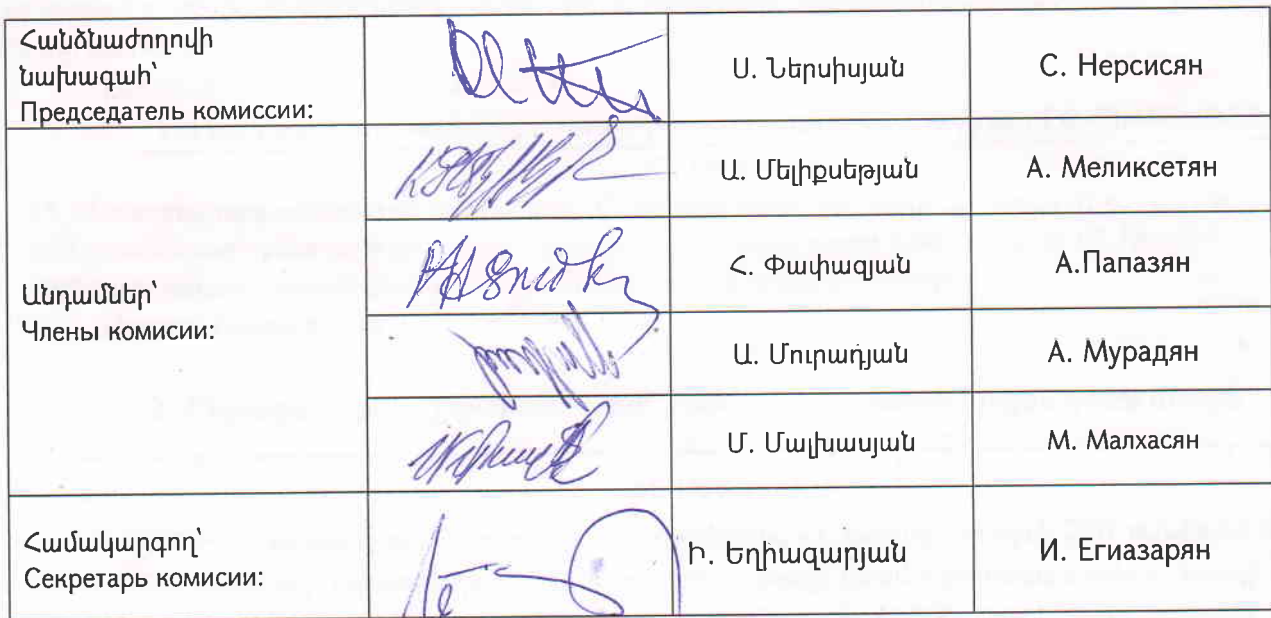 Հանձնաժողովի
նախագահ՝
Председатель комиссии:
Ս. Ներսիսյան
С. Нерсисян
Անդամներ՝
Члены комисии:
Ա. Մելիքսեթյան
А. Меликсетян
Հ. Փափազյան
А.Папазян
Ա. Մուրադյան
А. Мурадян
Մ. Մալխասյան
М. Малхасян
Համակարգող՝
Секретарь комисии:
Ի. Եղիազարյան
И. Егиазарян